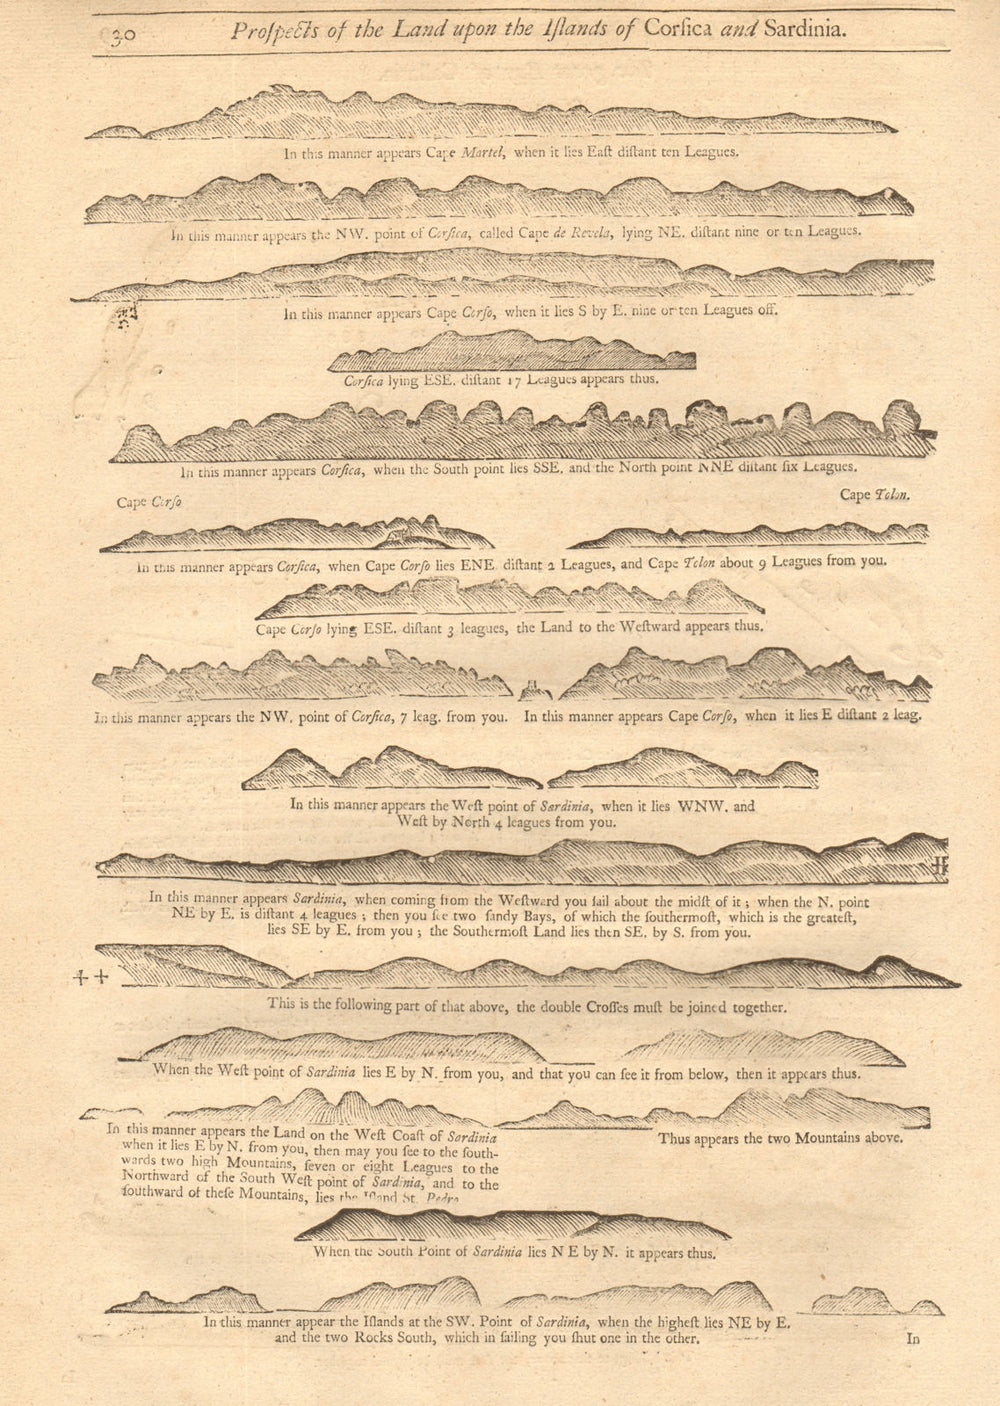 30
Proſpects of the Land upon the Iſlands of Corſica and Sardinia.
In this manner appears Cape Martel, when it lies Eaſt diſtant ten Leagues.
In this manner appears the NW. point of Corſica, called Cape de Revela, lying NE. diſtant nine or ten Leagues.
In this manner appears Cape Corſo, when it lies S by E. nine or ten Leagues off.
Corſica lying ESE. diſtant 17 Leagues appears thus.
In this manner appears Corſica, when the South point lies SSE. and the North point NNE diſtant ſix Leagues.
Cape Corſo
Cape Tolon.
In this manner appears Corſica, when Cape Corſo lies ENE diſtant 2 Leagues, and Cape Tolon about 9 Leagues from you.
Cape Corſo lying ESE. diſtant 3 leagues, the Land to the Weſtward appears thus.
In this manner appears the NW. point of Corſica, 7 leag. from you.
In this manner appears Cape Corſo, when it lies E diſtant 2 leag.
In this manner appears the Weſt point of Sardinia, when it lies WNW. and
Weſt by North 4 leagues from you.
In this manner appears Sardinia, when coming from the Weſtward you ſail about the midſt of it; when the N. point
NE by E. is diſtant 4 leagues; then you ſee two ſandy Bays, of which the ſouthermoſt, which is the greateſt,
lies SE by E. from you; the Southermoſt Land lies then SE. by S. from you.
This is the following part of that above, the double Croſſes muſt be joined together.
When the Weſt point of Sardinia lies E by N. from you, and that you can ſee it from below, then it appears thus.
In this manner appears the Land on the Weſt Coaſt of Sardinia
when it lies E by N. from you, then may you ſee to the ſouth-
wards two high Mountains, ſeven or eight Leagues to the
Northward of the South Weſt point of Sardinia, and to the
ſouthward of theſe Mountains, lies the Iſland St. Pedro
Thus appears the two Mountains above.
When the South Point of Sardinia lies NE by N. it appears thus.
In this manner appear the Iſlands at the SW. Point of Sardinia, when the higheſt lies NE by E.
and the two Rocks South, which in ſailing you ſhut one in the other.
In